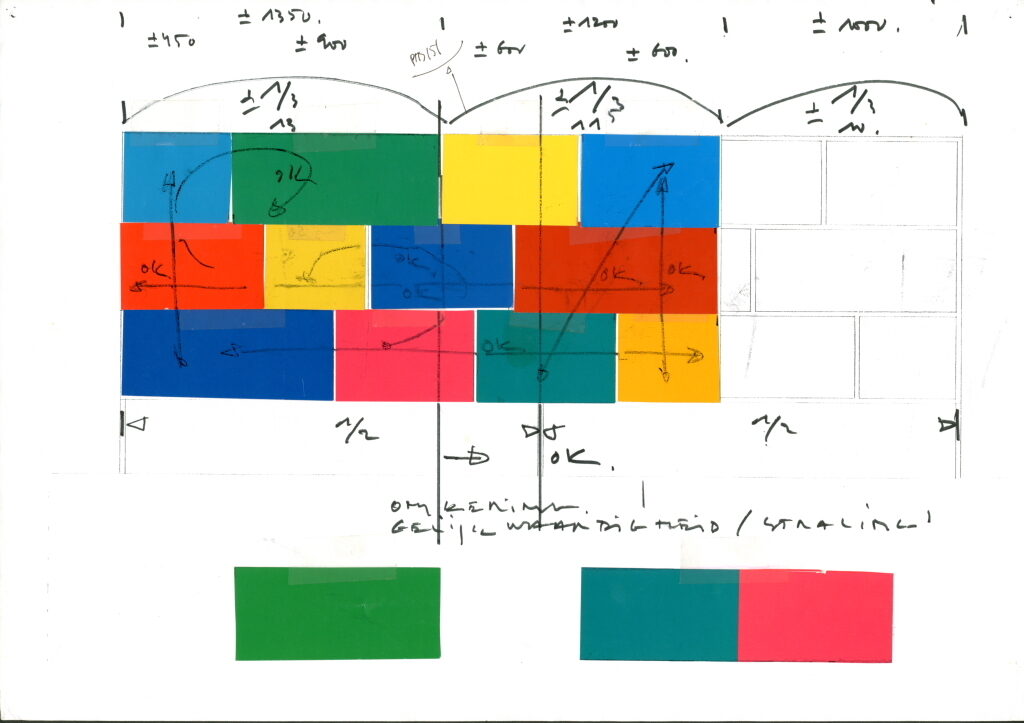 ± 1350.
± 1200
± 1000.
± 450
± 900
± 600
± 600.
± 1/3
± 1/3
± 1/3
13
11⁵
10.
OK
OK
OK
OK
OK
OK
OK
1/2
1/2
OK.
OMKERING.
GELIJKWAARDIGHEID / STRALING!